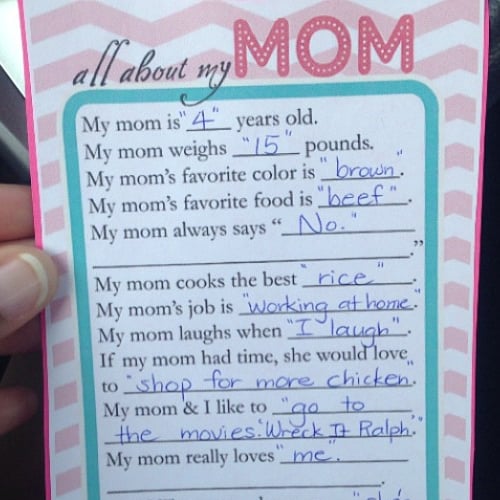 all about my MOM
My mom is "4" years old.
My mom weighs "15" pounds.
My mom's favorite color is "brown".
My mom's favorite food is "beef".
My mom always says "No."
."
My mom cooks the best "rice".
My mom's job is "working at home.
My mom laughs when "I laugh".
If my mom had time, she would love
to "shop for more chicken.
My mom & I like to "go to
the movies. Wreck It Ralph."
My mom really loves "me."